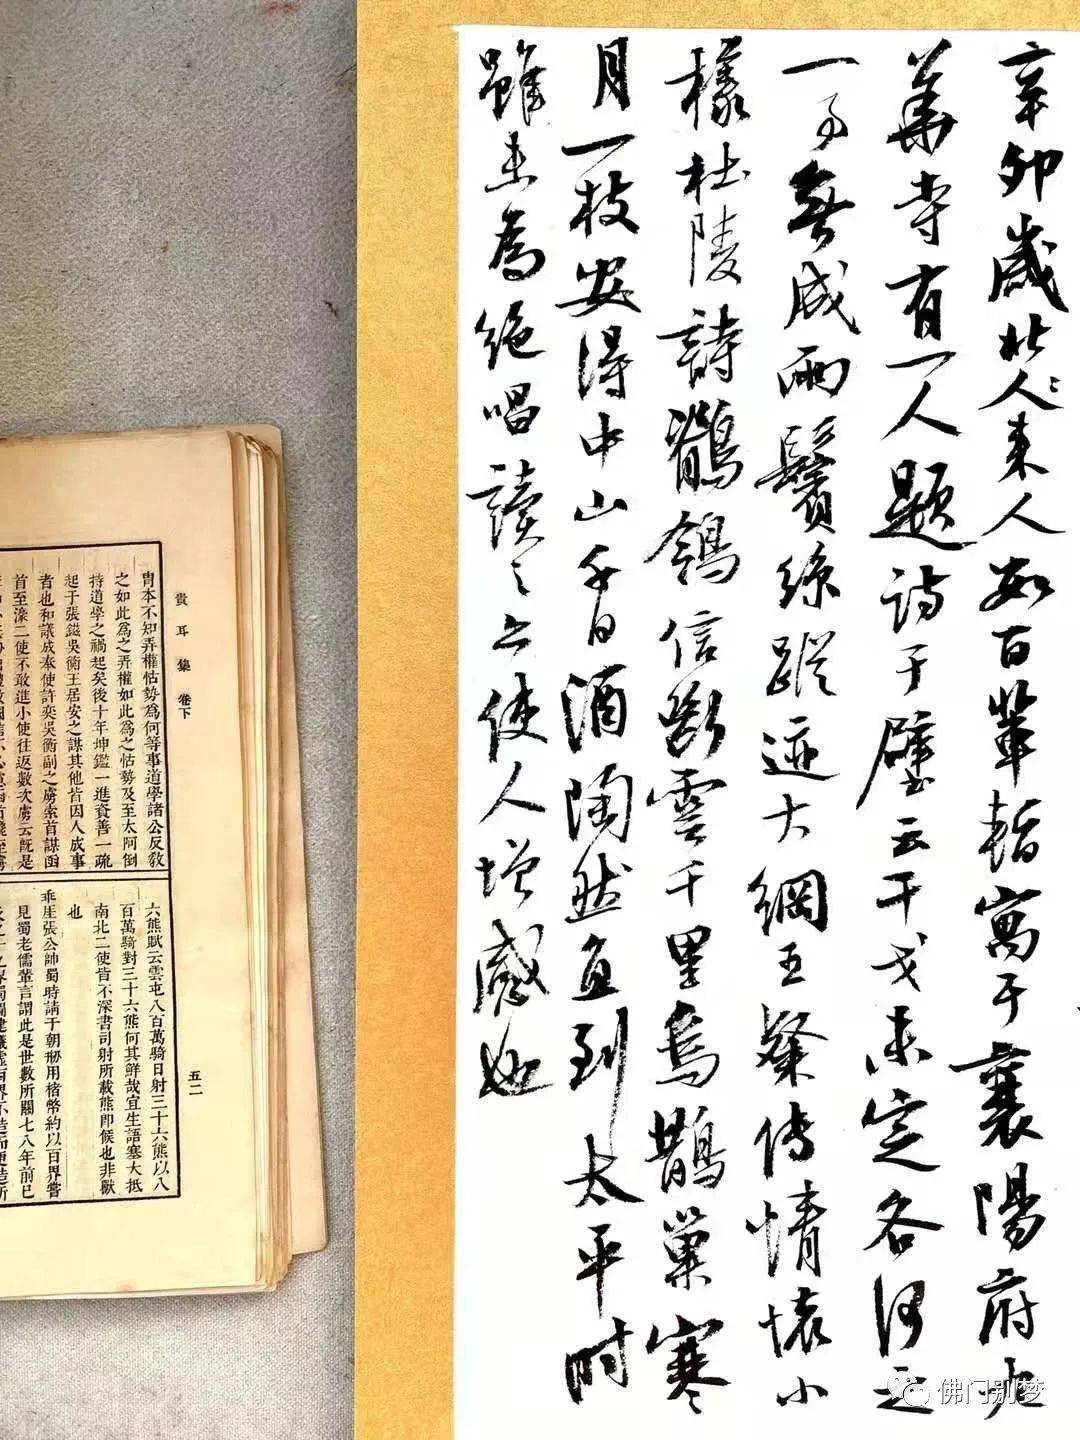 辛卯歲北人〻來人數百輩暫寓于襄陽府九
華寺有一人題诗于壁云干戈未定各何之
一事無成兩鬢絲蹤迹大綱王粲傳情懷小
樣杜陵詩鶺鴒信斷雲千里烏鵲巢寒
月一枝安得中山千日酒陶然直到太平时
雖未為絕唱讀之亦使人增感也
貴耳集 卷下
五二
胄本不知弄權怙勢為何等事道學諸公反敎
之如此為之弄權如此為之怙勢及至太阿倒
持道學之禍起矣後十年坤鑑一進資善一疏
起于張鎡吳衡王居安之謀其他皆因人成事
者也和議成奉使許奕吳衡副之虜索首謀函
首至濠二使不敢進小使往返數次虜云旣是
六熊賦云雲屯八百萬騎日射三十六熊以八
百萬騎對三十六熊何其鮮哉宜生語塞大抵
南北二使皆不深書司射所載熊卽候也非獸
也
乖崖張公帥蜀時請于朝剏用楮幣約以百界嘗
見蜀老儒輩言謂此是世數所關七八年前已
佛门别梦